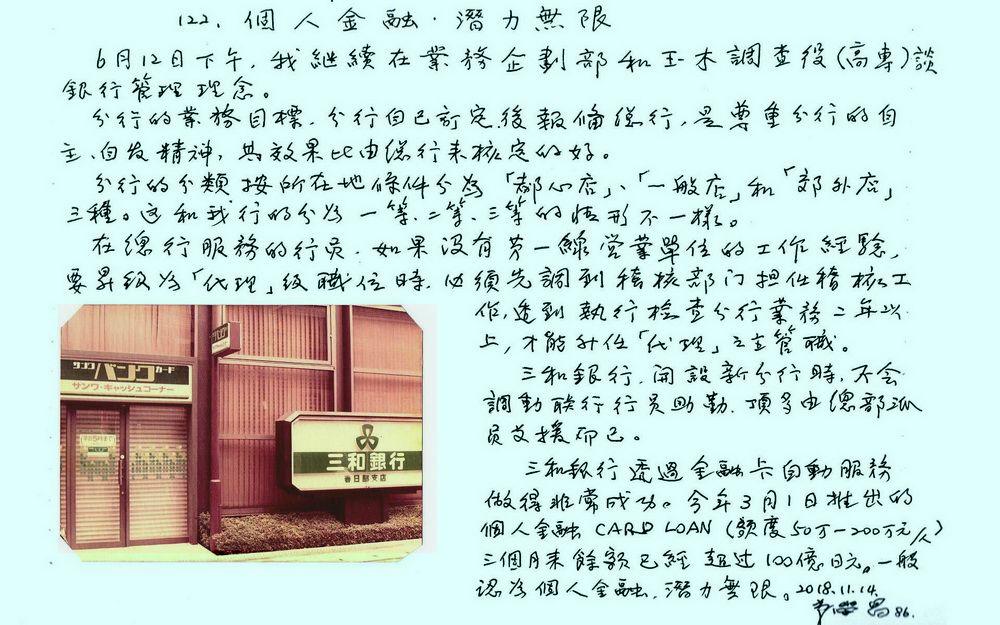 122. 個人金融．潛力無限
6月12日下午，我継續在業務企劃部和玉木調查役(高專)談
銀行管理理念。
分行的業務目標，分行自已訂定後報俻總行，是尊重分行的自
主、自发精神，其效果比由總行來核定的好。
分行的分類按所在地條件分為「都心店」、「一般店」和「郊外店」
三種。这和我行的分為一等、二等、三等的情形不一樣。
在總行服務的行员，如果没有第一線営業單位的工作経験，
要昇級為「代理」级職位時，必須先調到稽核部门担任稽核工
作，達到執行檢查分行業務二年以
上，才能升任「代理」之主管職。
三和銀行，開設新分行時，不会
調動联行行员助勤，頂多由總部派
员支援而已。
三和銀行透過金融卡自動服務
做得非常成功。今年3月1日推出的
個人金融 CARD LOAN (額度50万－200万元/人)
三個月末餘額已經超过100億日元。一般
認為個人金融，潛力無限。2018.11.14.
86.
サンワ バンク カード
サンワ・キャッシュコーナー
バンク
三和銀行
春日部支店